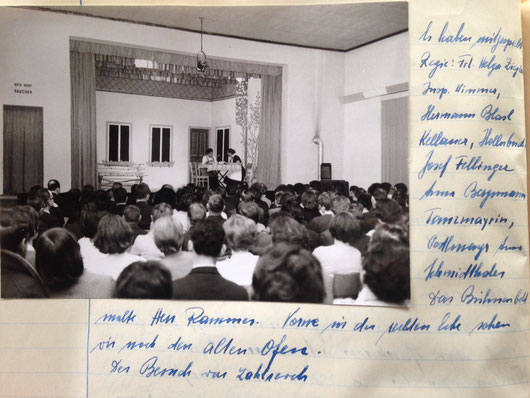 BITTE NICHT
RAUCHEN
Es haben mitgespielt
Regie: Frl. Helga Zieg
Insp. Wimmer,
Hermann Blasl
Kellaner,
Josef Fellinger
Anna Bergmann
Tanzmayrin,
Anna
Das Bühnenbild
malte Herr Rammer. Vorne in der rechten Ecke sehen
wir noch den alten Ofen.
Der Besuch war zahlreich